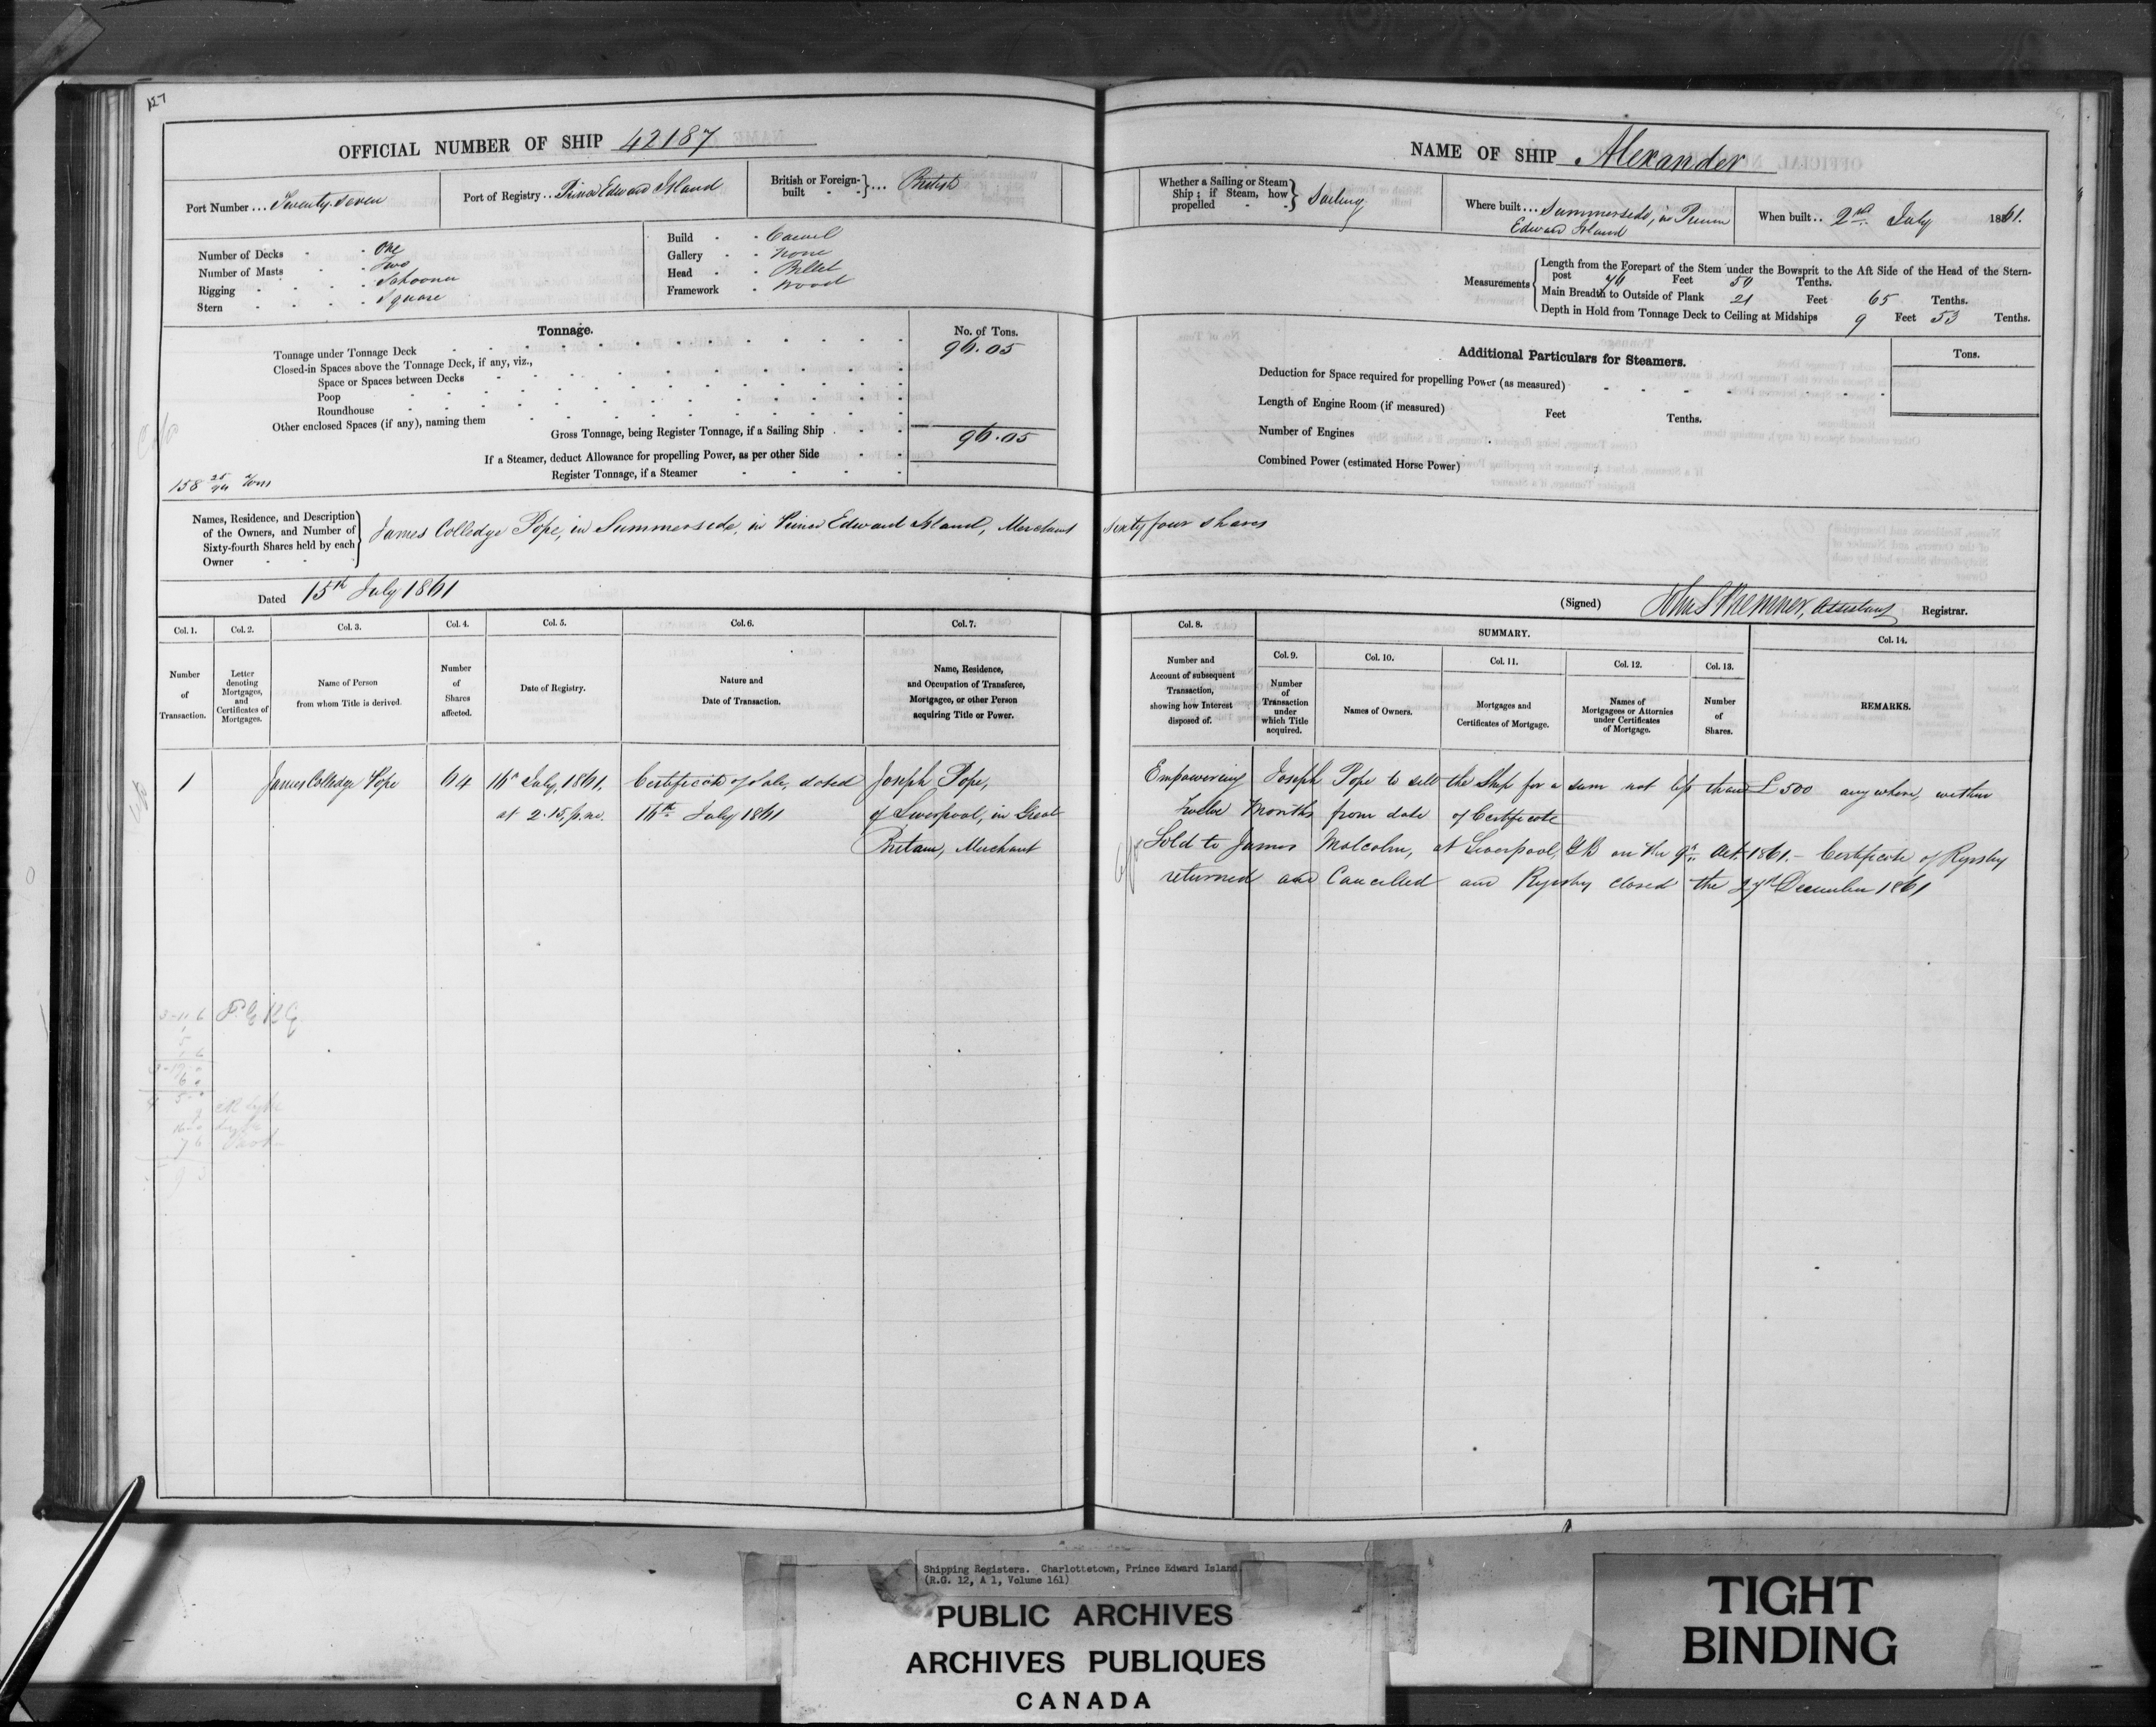 127
OFFICIAL NUMBER OF SHIP 42187
Port Number ... Seventy Seven
Port of Registry .. Prince Edward Island
British or Foreign-built ... British
Number of Decks - One
Number of Masts - Two
Rigging - Schooner
Stern - Square
Build - Carvel
Gallery - None
Head - Billet
Framework - Wood
Tonnage.
No. of Tons.
Tonnage under Tonnage Deck 96.05
Closed-in Spaces above the Tonnage Deck, if any, viz.,
Space or Spaces between Decks
Poop
Roundhouse
Other enclosed Spaces (if any), naming them
Gross Tonnage, being Register Tonnage, if a Sailing Ship 96.05
If a Steamer, deduct Allowance for propelling Power, as per other Side
Register Tonnage, if a Steamer
158 25/94 Tons
Names, Residence, and Description
of the Owners, and Number of
Sixty-fourth Shares held by each
Owner
James Colledge Pope, in Summerside, in Prince Edward Island, Merchant Sixty four shares
Dated 15th July 1861
NAME OF SHIP Alexander
Whether a Sailing or Steam
Ship; if Steam, how
propelled
Sailing
Where built ... Summerside, in Prince
Edward Island
When built .. 2nd July 1861.
Measurements
Length from the Forepart of the Stem under the Bowsprit to the Aft Side of the Head of the Stern-
post 76 Feet 50 Tenths.
Main Breadth to Outside of Plank 21 Feet 65 Tenths.
Depth in Hold from Tonnage Deck to Ceiling at Midships 9 Feet 53 Tenths.
Additional Particulars for Steamers.
Tons.
Deduction for Space required for propelling Power (as measured)
Length of Engine Room (if measured) Feet Tenths.
Number of Engines
Combined Power (estimated Horse Power)
(Signed) Assistant Registrar.
Col. 1.
Number
of
Transaction.
Col. 2.
Letter
denoting
Mortgages,
and
Certificates of
Mortgages.
Col. 3.
Name of Person
from whom Title is derived.
Col. 4.
Number
of
Shares
affected.
Col. 5.
Date of Registry.
Col. 6.
Nature and
Date of Transaction.
Col. 7.
Name, Residence,
and Occupation of Transferee,
Mortgagee, or other Person
acquiring Title or Power.
Col. 8.
Number and
Account of subsequent
Transaction,
showing how Interest
disposed of.
SUMMARY.
Col. 9.
Number
of
Transaction
under
which Title
acquired.
Col. 10.
Names of Owners.
Col. 11.
Mortgages and
Certificates of Mortgage.
Col. 12.
Names of
Mortgagees or Attornies
under Certificates
of Mortgage.
Col. 13.
Number
of
Shares.
Col. 14.
REMARKS.
1 James Colledge Pope 64 16th July, 1861, Certificate of Sale, dated Joseph Pope,
at 2.15, p.m. 16th July 1861 of Liverpool, in Great
Britain, Merchant
Empowering Joseph Pope to sell the Ship for a sum not less than £500 any where, within
twelve Months from date of Certificate
Sold to James Malcolm, at Liverpool, GB on the 9th Oct. 1861. - Certificate of Registry
returned and Cancelled and Registry closed the 27th December 1861
Shipping Registers. Charlottetown, Prince Edward Island
(R.G. 12, A 1, Volume 161)
PUBLIC ARCHIVES
ARCHIVES PUBLIQUES
CANADA
TIGHT
BINDING